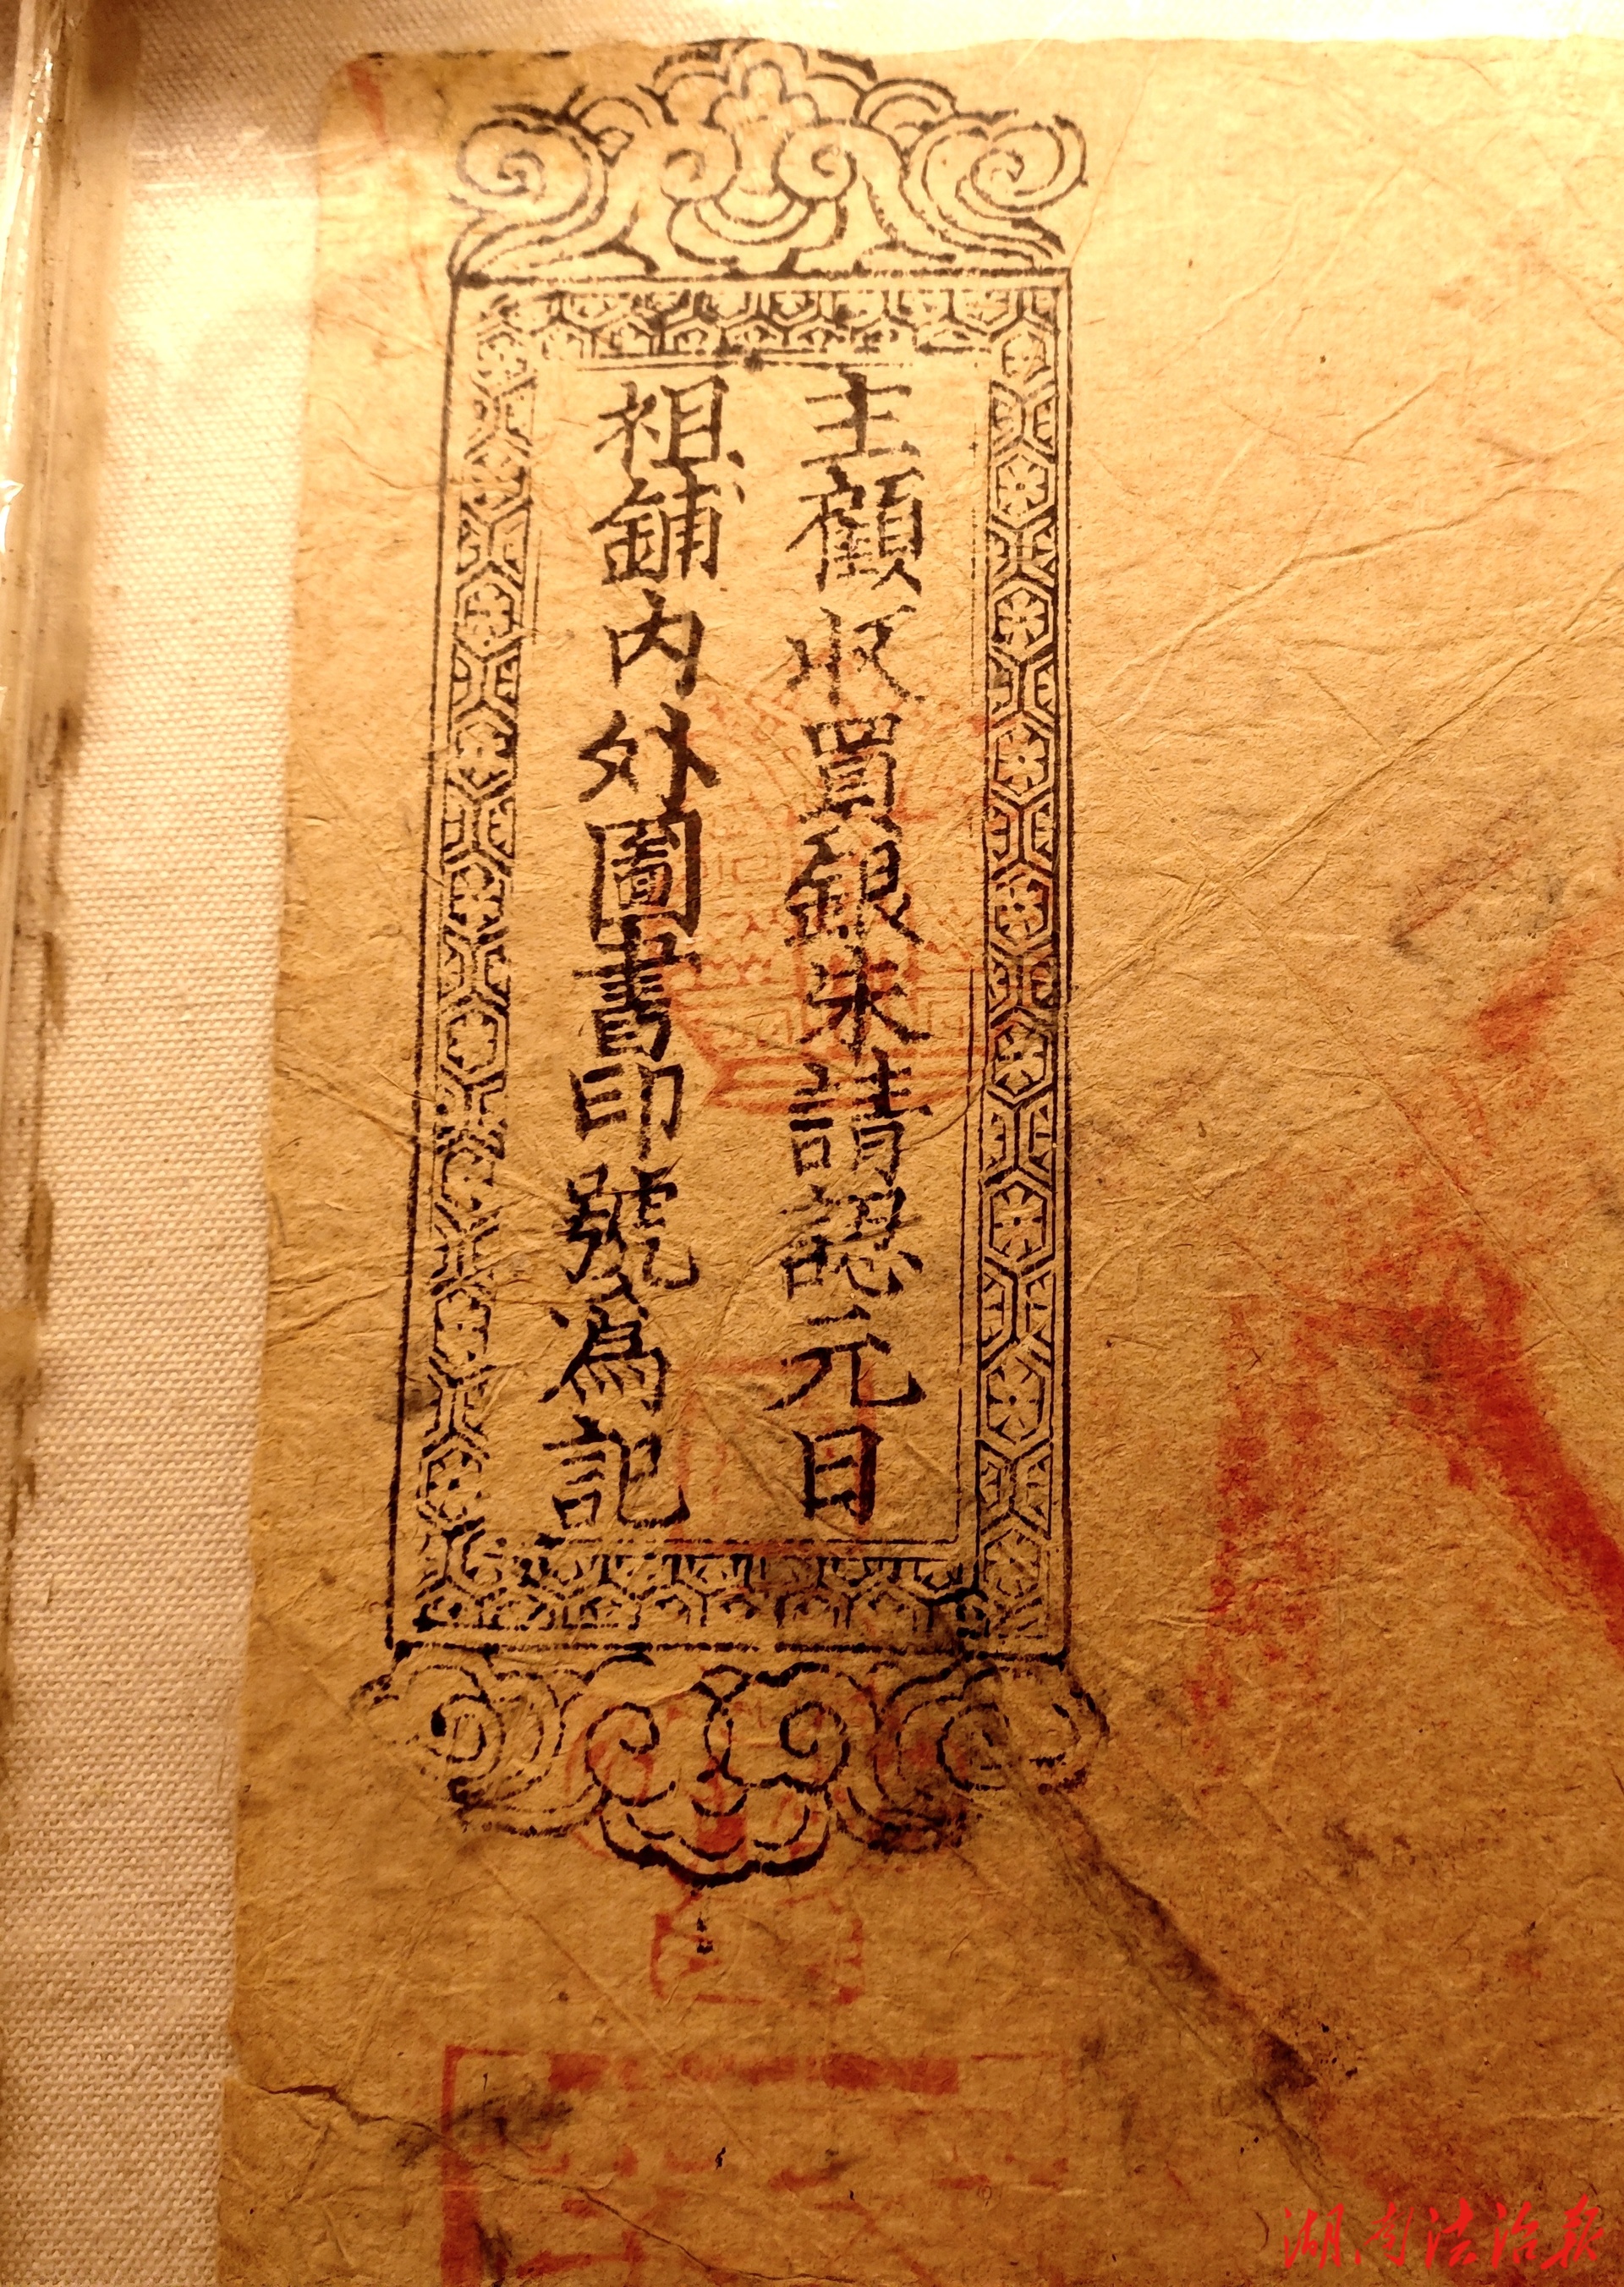 主顧收買銀朱請認元日
祖鋪内外圖書印號為記
湖南法治报